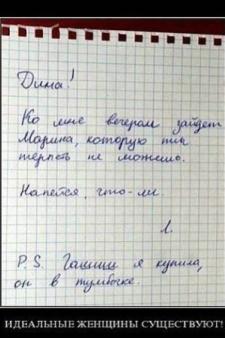 Дима!
Ко мне вечером зайдет
Марина, которую ты
терпеть не можешь.
Напейся, что-ли.
Л.
P.S. Гашиш я купила,
он в тумбочке.
ИДЕАЛЬНЫЕ ЖЕНЩИНЫ СУЩЕСТВУЮТ!